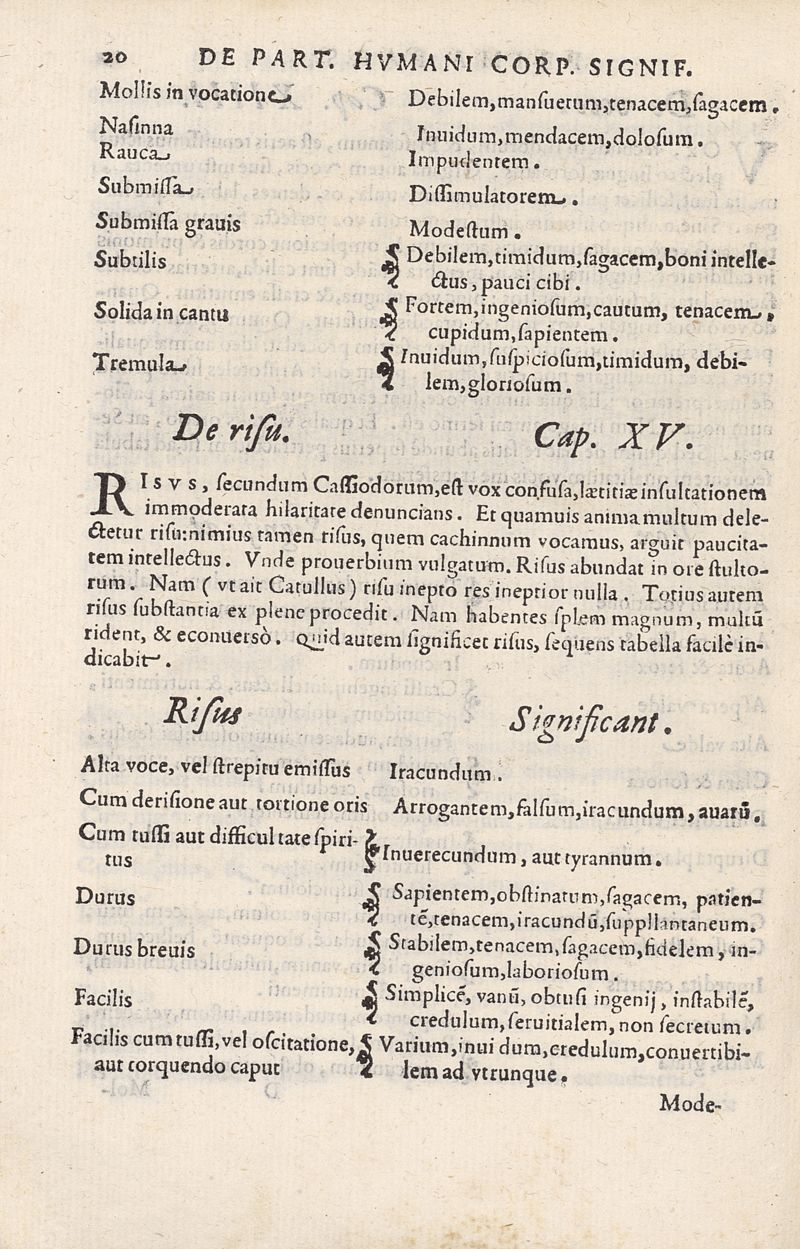 20 DE PART. HVMANI CORP. SIGNIF.
Mollis in vocatione Debilem,manſuetum,tenacem,ſagacem.
Naſinna Inuidum,mendacem,doloſum.
Rauca Impudentem.
Submiſſa Diſſimulatorem.
Submiſſa grauis Modeſtum.
Subtilis Debilem,timidum,ſagacem,boni intelle-
ctus, pauci cibi.
Solida in cantu Fortem,ingenioſum,cautum, tenacem,
cupidum,ſapientem.
Tremula Inuidum,ſuſpicioſum,timidum, debi-
lem,glorioſum.
De riſu. Cap. XV.
RISVS, ſecundum Caſſiodorum,eſt vox confuſa,lætitiæ inſultationem
immoderata hilaritate denuncians. Et quamuis anima multum dele-
ctetur riſu:nimius tamen riſus, quem cachinnum vocamus, arguit paucita-
tem intellectus. Vnde prouerbium vulgatum. Riſus abundat in ore ſtulto-
rum. Nam ( vt ait Catullus ) riſu inepto res ineptior nulla. Totius autem
riſus ſubſtantia ex plene procedit. Nam habentes ſplem magnum, multū
rident, & econuersò. Quid autem ſignificet riſus, ſequens tabella facilè in-
dicabit.
Riſus Significant.
Alta voce, vel ſtrepitu emiſſus Iracundum.
Cum deriſione aut tortione oris Arrogantem,falſum,iracundum, auarū.
Cum tuſſi aut difficultate ſpiri-
tus Inuerecundum, aut tyrannum.
Durus Sapientem,obſtinatum,ſagacem, patien-
tē,tenacem,iracundū,ſuppllantaneum.
Durus breuis Stabilem,tenacem,ſagacem,fidelem, in-
genioſum,laborioſum.
Facilis Simplicē, vanū, obtuſi ingenij, inſtabilē,
credulum,ſeruitialem, non ſecretum.
Facilis cum tuſſi, vel oſcitatione, Varium,inui dum,credulum,conuertibi-
aut torquendo caput lem ad vtrunque.
Mode-